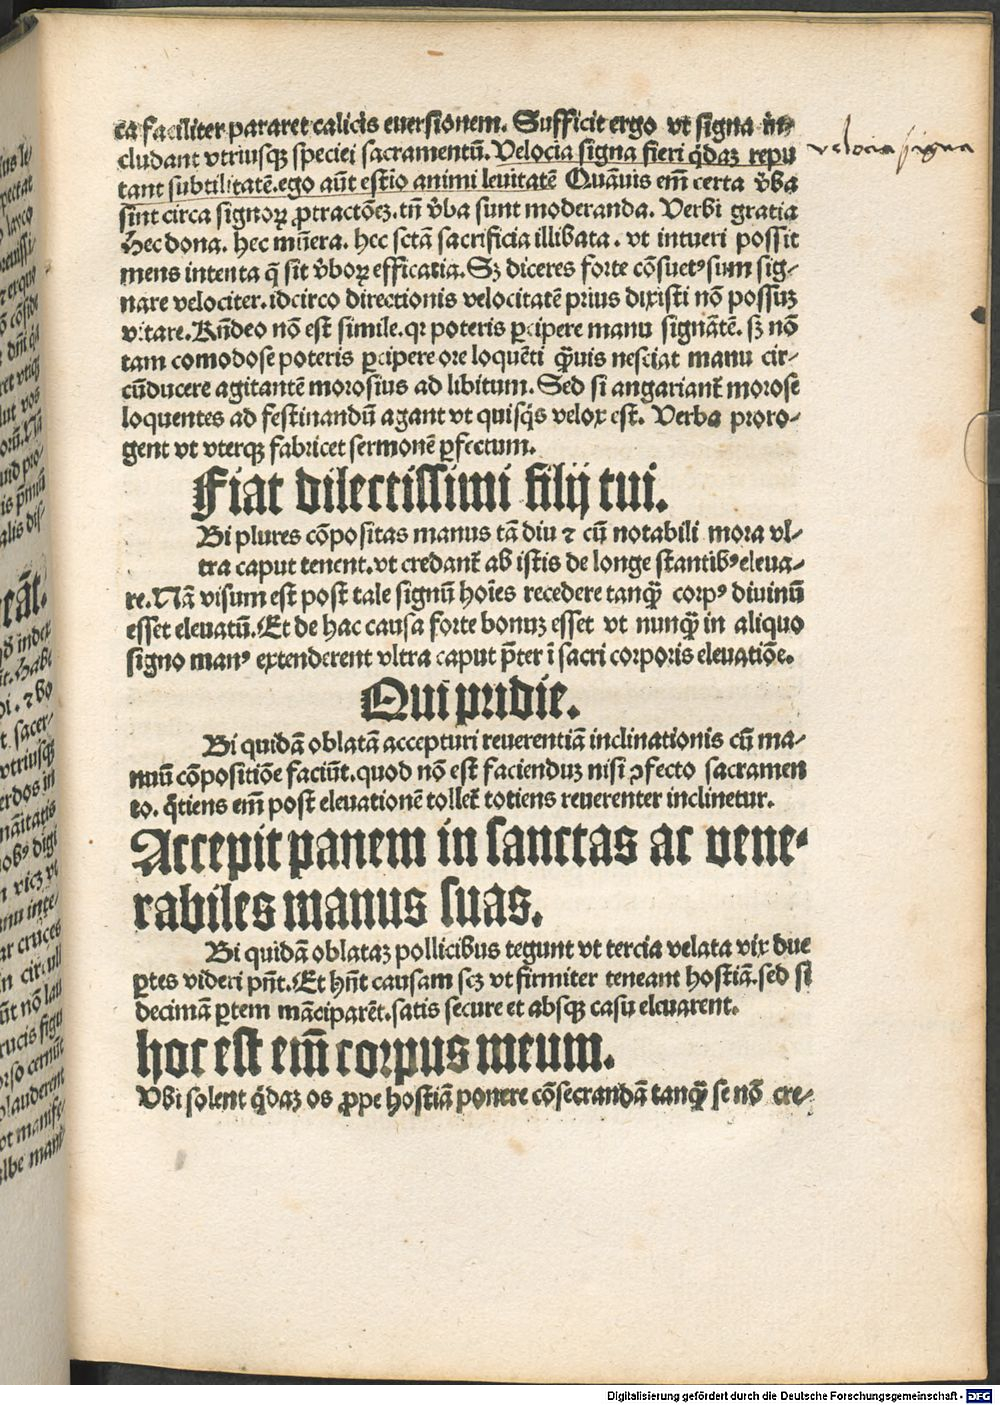 ca faciliter pararet calicis euersionem. Sufficit ergo vt signa in-
cludant vtriusqꝫ speciei sacramentū. Velocia signa fieri q̈daꝫ repu
tant subtilitatē. ego aūt estīo animi leuitatē Quāuis em̄ certa v̄ba
sint circa signoꝝ ꝓtractōeꝫ. tn̄ v̄ba sunt moderanda. Verbi gratia
Hec dona. hec mūera. hec sctā sacrificia illibata. vt intueri possit
mens intenta q̄ sit v̄boꝝ efficatia. Sꝫ diceres forte cōsuetꝰ sum sig-
nare velociter. idcirco directionis velocitatē prius dixisti nō possuꝫ
vitare. Rn̄deo nō est simile. qꝛ poteris ꝑcipere manu signātē. sꝫ nō
tam comodose poteris ꝑcipere ore loquēti q̄uis nesciat manu cir-
cūducere agitantē morosius ad libitum. Sed si angariant̄ morose
loquentes ad festinandū agant vt quisq̇s velox est. Verba proro-
gent vt vterqꝫ fabricet sermonē ꝑfectum.
Fiat dilectissimi filij tui.
Bi plures cōpositas manus tā diu ⁊ cū notabili mora vl-
tra caput tenent. vt credant̄ ab istis de longe stantibꝰ eleua-
re. Nā visum est post tale signū hoīes recedere tanq̄ꝫ corpꝰ diuinū
esset eleuatū. Et de hac causa forte bonuꝫ esset vt nunq̄ꝫ in aliquo
signo manꝰ extenderent vltra caput p̄ter ī sacri corporis eleuatiōe.
Qui pridie.
Bi quidā oblatā accepturi reuerentiā inclinationis cū ma-
nuū cōpositiōe faciūt. quod nō est facienduꝫ nisi ꝯfecto sacramen
to. q̄tiens em̄ post eleuationē tollet̄ totiens reuerenter inclinetur.
Accepit panem in sanctas ac vene-
rabiles manus suas.
Bi quidā oblataꝫ pollicibus tegunt vt tercia velata vix due
ꝑtes videri pn̄t. Et hn̄t causam scꝫ vt firmiter teneant hostiā. sed si
decimā ꝑtem māciparēt. satis secure et absqꝫ casu eleuarent.
hoc est em̄ corpus meum.
Vbi solent q̇daꝫ os ꝓpe hostiā ponere cōsecrandā tanq̄ꝫ se nō cre-
velocia signa
Digitalisierung gefördert durch die Deutsche Forschungsgemeinschaft - DFG